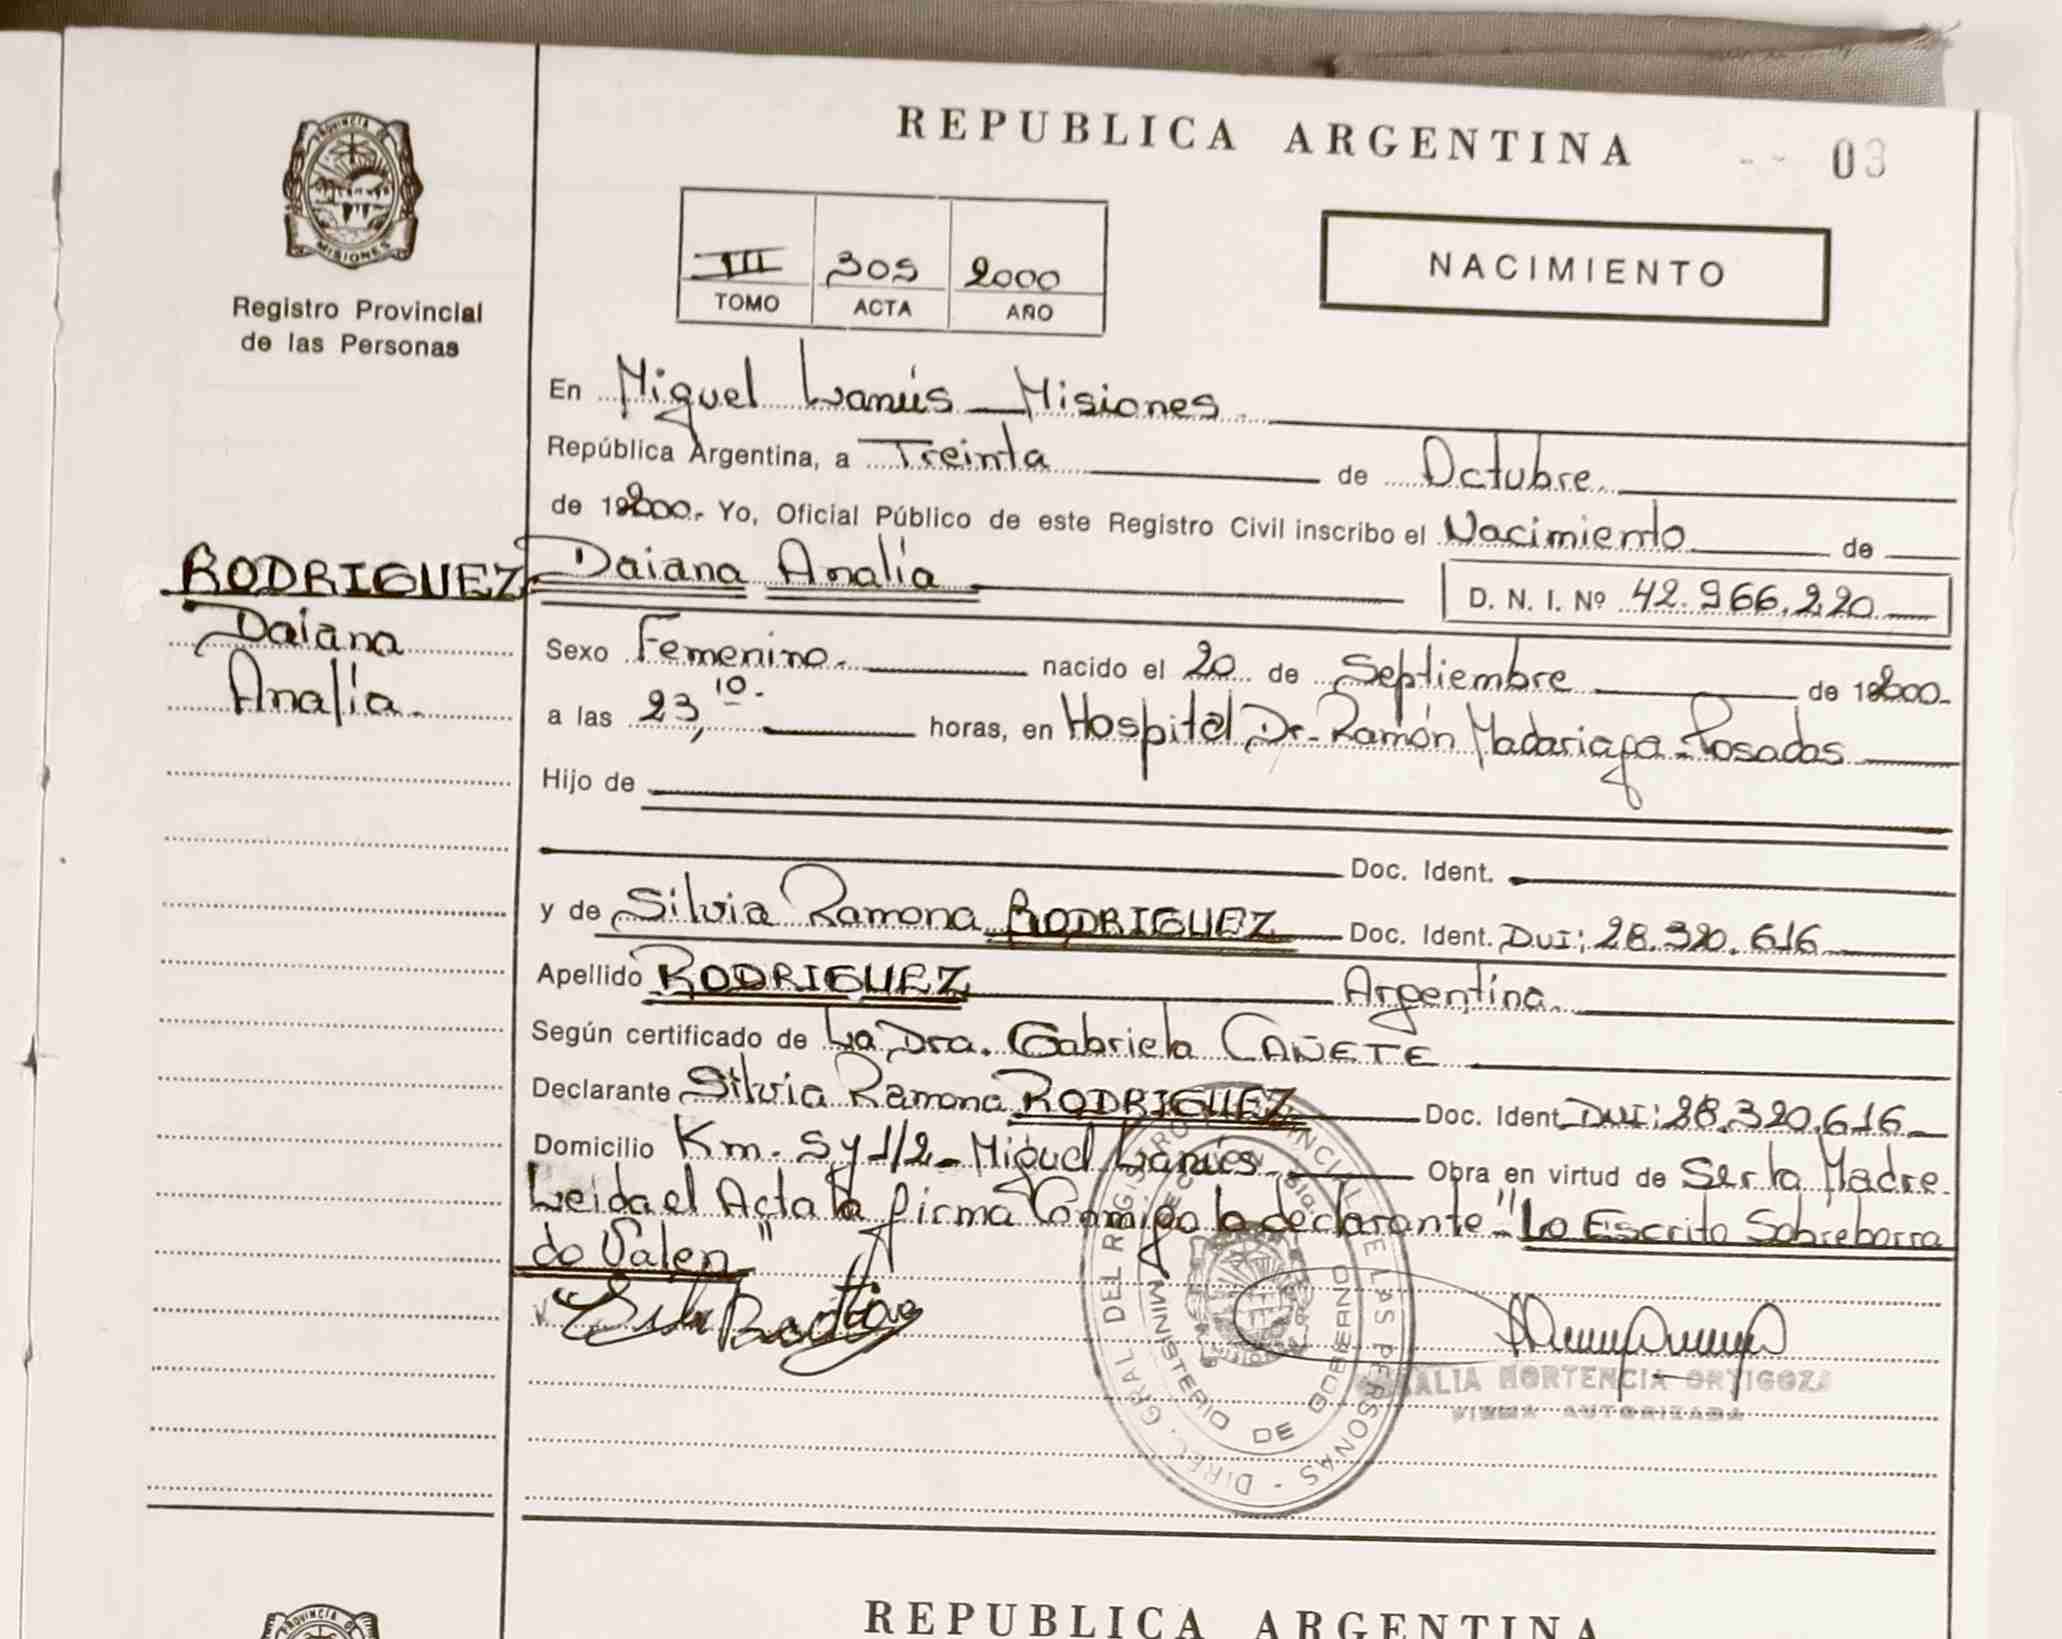 REPUBLICA ARGENTINA
03
PROVINCIA DE
MISIONES
Registro Provincial
de las Personas
III 305 2000
TOMO ACTA AÑO
NACIMIENTO
En Miguel Lanús - Misiones
República Argentina, a Treinta de Octubre
de 2000.- Yo, Oficial Público de este Registro Civil inscribo el Nacimiento de
RODRIGUEZ Daiana Analía D. N. I. Nº 42.966.220
Daiana
Analía.
Sexo Femenino.- nacido el 20 de Septiembre de 2000.-
a las 23,10.- horas, en Hospital Dr. Ramón Madariaga - Posadas
Hijo de
Doc. Ident.
y de Silvia Ramona RODRIGUEZ Doc. Ident. DUI: 28.320.616
Apellido RODRIGUEZ Argentina.
Según certificado de La Dra. Gabriela CAÑETE
Declarante Silvia Ramona RODRIGUEZ Doc. Ident. DUI: 28.320.616
Domicilio Km. 5 y 1/2 - Miguel Lanús Obra en virtud de Ser la Madre.
Leida el Acta la firma Conmigo la declarante "Lo Escrito Sobreborra
do Valen"
DIREC. GRAL DEL REGISTRO PROVINCIAL DE LAS PERSONAS
MINISTERIO DE GOBIERNO
ALIA HORTENCIA ORTIGOZA
FIRMA AUTORIZADA
PROVINCIA
REPUBLICA ARGENTINA